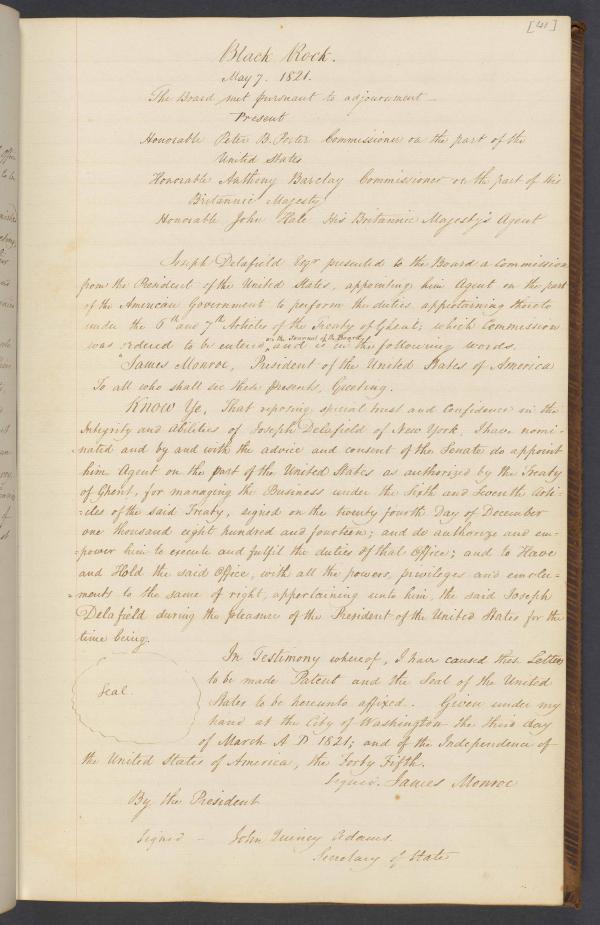 [41]
Black Rock.
May 7. 1821.
The Board met pursuant to adjournment —
Present
Honorable Peter B. Porter Commissioner on the part of the
United States
Honorable Anthony Barclay Commissioner on the part of His
Britannic Majesty
Honorable John Hale His Britannic Majesty's Agent
Joseph Delafield Esqr presented to the Board a Commission
from the President of the United States, appointing him Agent on the part
of the American Government to perform the duties appertaining thereto
under the 6th and 7th Articles of the Treaty of Ghent; which Commission
on the Journal of the Board
was ordered to be entered, and is in the following words.
"James Monroe, President of the United States of America
To all who shall see these presents, Greeting.
Know Ye, That reposing special trust and Confidence in the
Integrity and abilities of Joseph Delafield of New York, I have nomi-
nated and by and with the advice and consent of the Senate do appoint
him Agent on the part of the United States as authorized by the Treaty
of Ghent, for managing the Business under the Sixth and Seventh Arti-
-cles of the said Treaty, signed on the twenty fourth Day of December
one thousand eight hundred and fourteen; and do authorize and em-
-power him to execute and fulfil the duties of that Office; and to Have
and Hold the said Office, with all the powers, privileges and emolu-
-ments to the same of right, appertaining unto him, the said Joseph
Delafield during the pleasure of the President of the United States for the
time being.
Seal.
In Testimony whereof, I have caused these Letters
to be made Patent and the Seal of the United
States to be hereunto affixed. Given under my
hand at the City of Washington the third day
of March A D 1821; and of the Independence of
the United States of America, the Forty Fifth.
Signed. James Monroe
By the President
Signed — John Quincy Adams.
Secretary of State